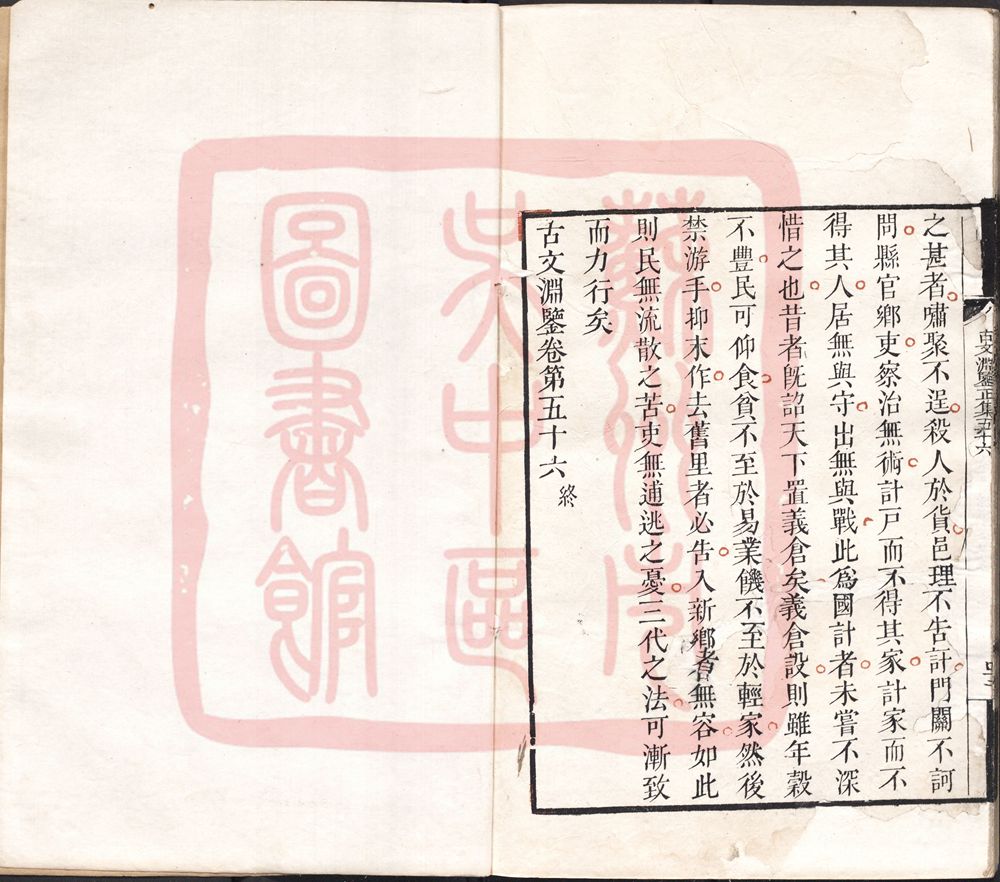 之甚者嘯聚不逞殺人於貨邑理不告訐門關不訶
問縣官鄉吏察治無術計戸而不得其家計家而不
得其人居無與守出無與戰此爲國計者未嘗不深
惜之也昔者旣詔天下置義倉矣義倉設則雖年穀
不豐民可仰食貧不至於易業饑不至於輕家然後
禁游手抑末作去舊里者必告入新鄉者無容如此
則民無流散之苦吏無逋逃之憂三代之法可漸致
而力行矣
古文淵鑒卷第五十六 終
古文淵鑒正集五十六
蘇州市
吳中區
圖書館